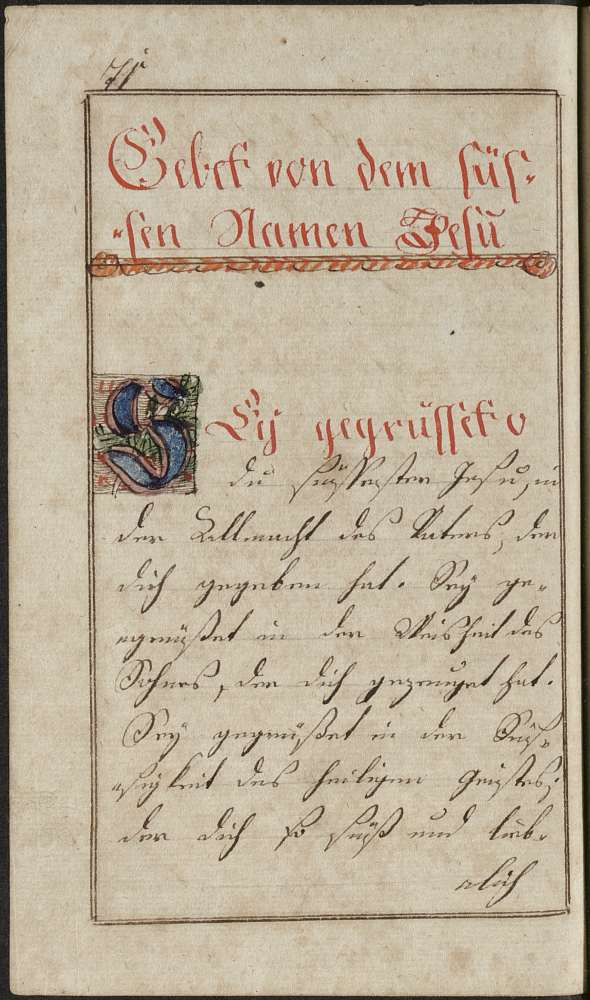 71
Gebet von dem süs-
-sen Namen Jesu
SEy gegrüsset o
du süssester Jesu, in
der Allmacht des Vaters, der
dich gegeben hat. Sey ge-
-grüßet in der Weisheit des
Sohnes, der dich gezeuget hat.
Sey gegrüßet in der Süs-
-sigkeit des heiligen Geistes,
der dich so süß und lieb-
-lich